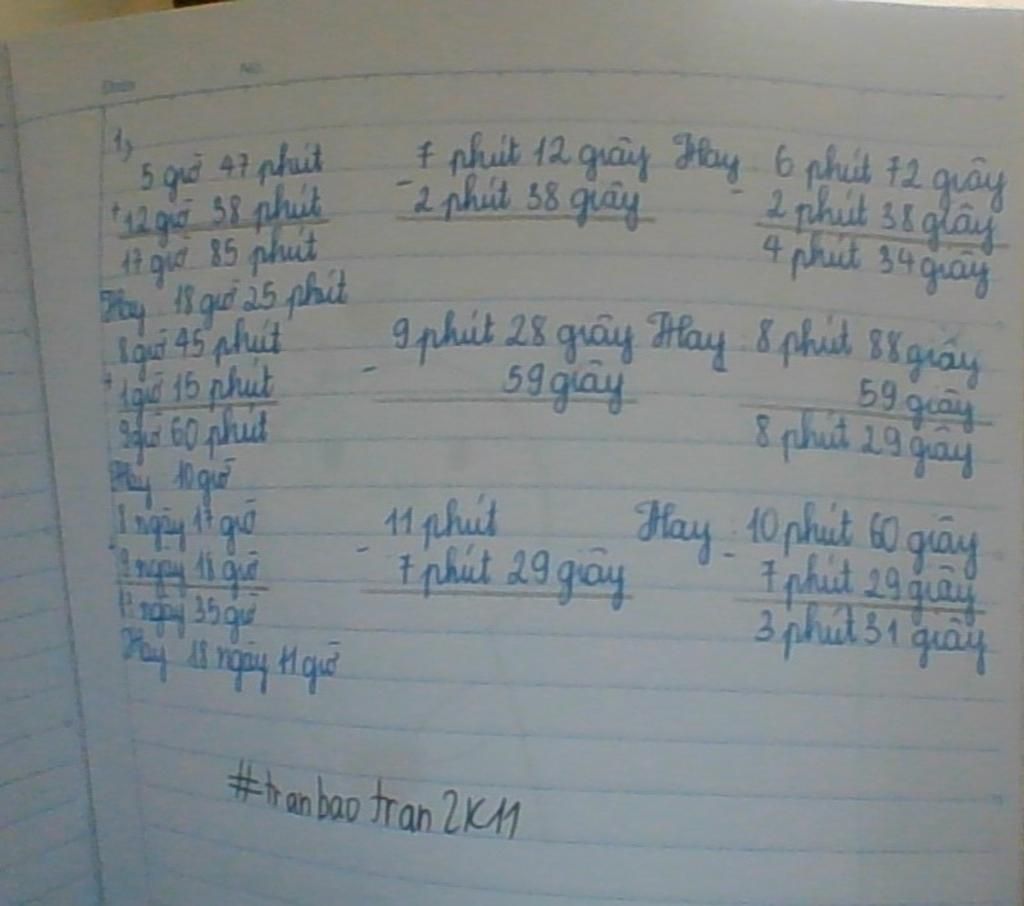 Date No
1,
5 giờ 47 phút
+ 12 giờ 38 phút
17 giờ 85 phút
Hay 18 giờ 25 phút
8 giờ 45 phút
+ 1 giờ 15 phút
9 giờ 60 phút
Hay 10 giờ
8 ngày 17 giờ
+ 9 ngày 18 giờ
17 ngày 35 giờ
Hay 18 ngày 11 giờ
7 phút 12 giây Hay 6 phút 72 giây
- 2 phút 38 giây - 2 phút 38 giây
4 phút 34 giây
9 phút 28 giây Hay 8 phút 88 giây
- 59 giây 59 giây
8 phút 29 giây
11 phút Hay 10 phút 60 giây
- 7 phút 29 giây - 7 phút 29 giây
3 phút 31 giây
#tranbaotran2K11